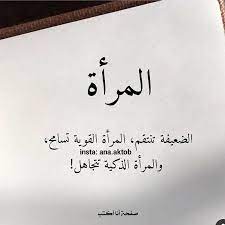 المرأة
الضعيفة تنتقم، المرأة القوية تسامح،
insta: ana.aktob
والمرأة الذكية تتجاهل!
صفحة أنا أكتب